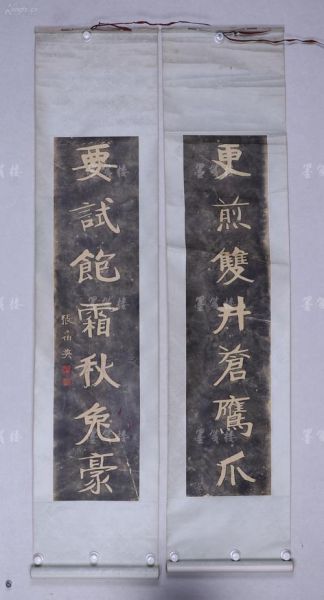 更煎雙井蒼鷹爪
要試飽霜秋兔豪